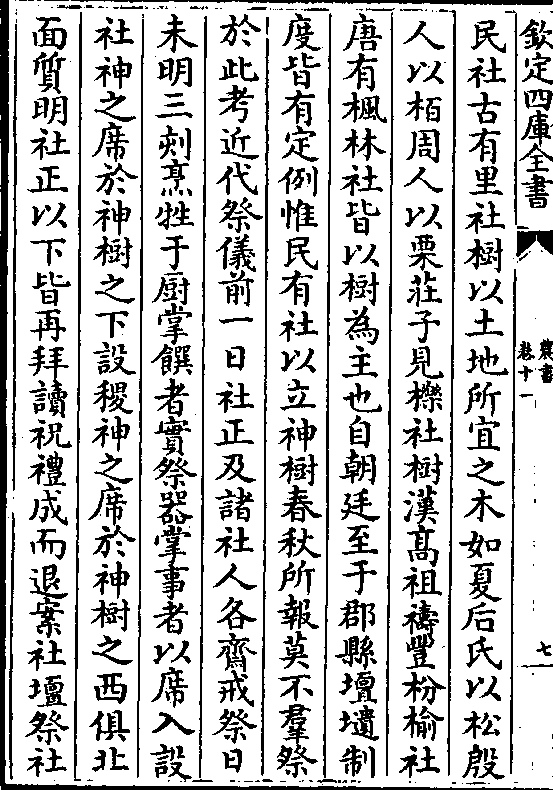 欽定四庫全書
農書
卷十一
七
民社古有里社樹以土地所宜之木如夏后氏以松殷
人以栢周人以栗莊子見櫟社樹漢髙祖禱豐枌榆社
唐有楓林社皆以樹為主也自朝廷至于郡縣壇壝制
度皆有定例惟民有社以立神樹春秋所報莫不羣祭
於此考近代祭儀前一日社正及諸社人各齋戒祭日
未明三刻烹牲于厨掌饌者實祭器掌事者以席入設
社神之席於神樹之下設稷神之席於神樹之西俱北
面質明社正以下皆再拜讀祝禮成而退案社壇祭社